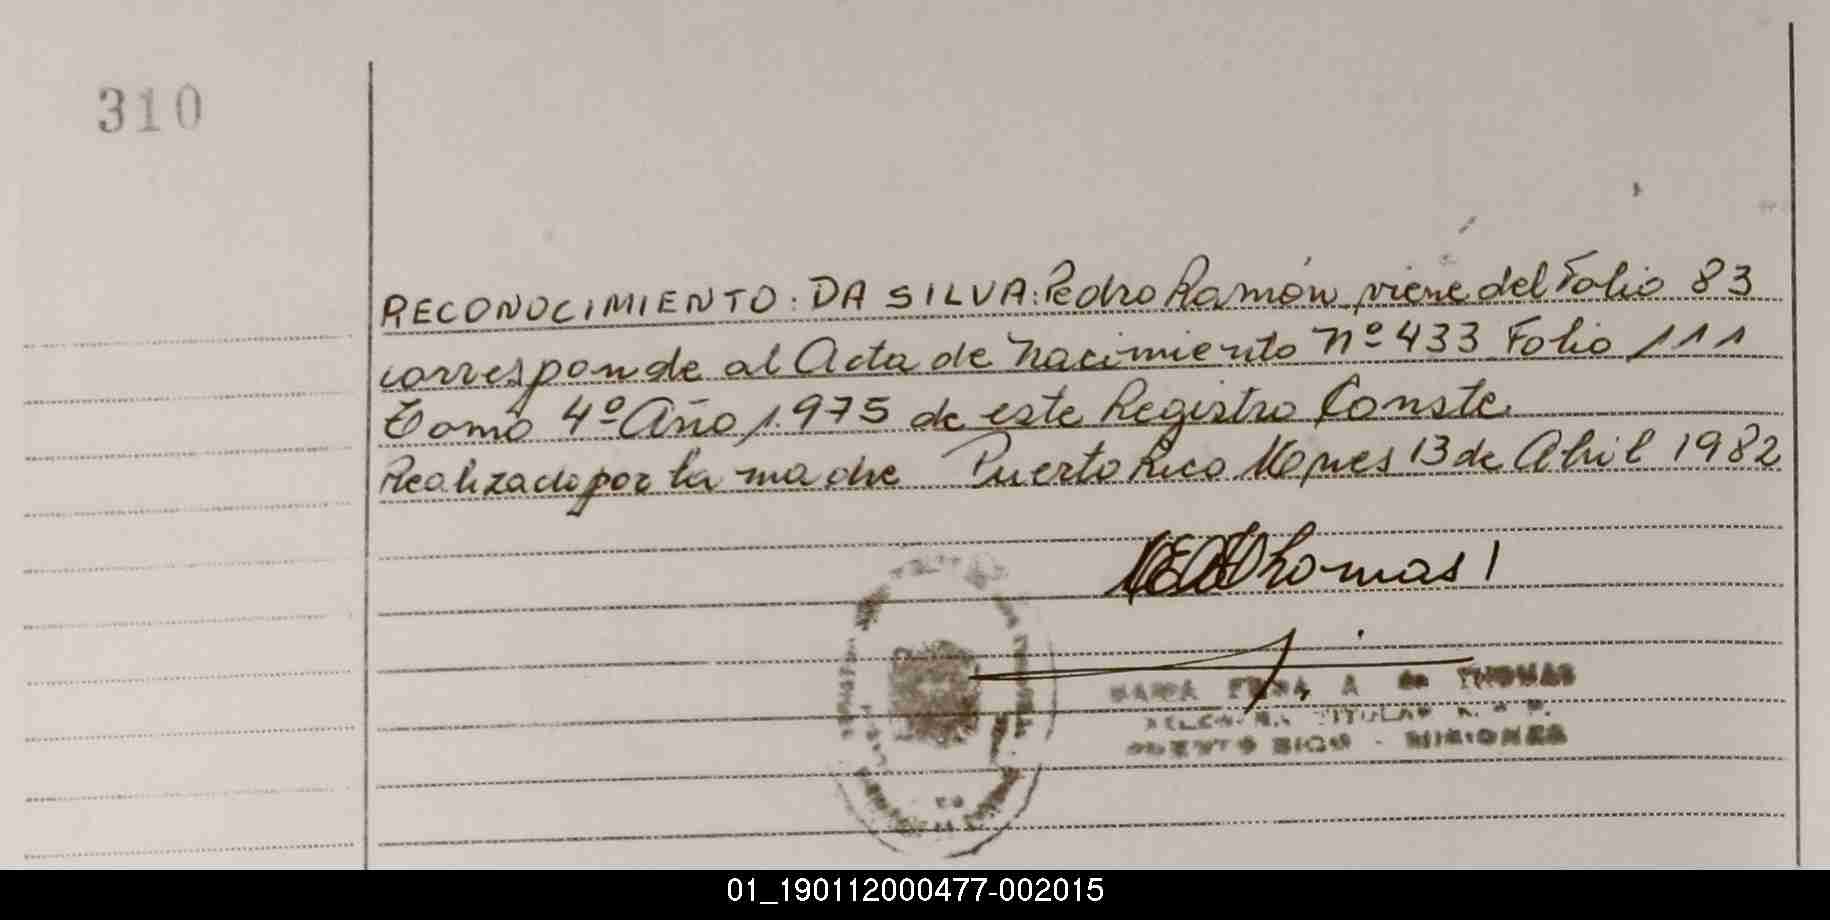 310
RECONOCIMIENTO: DA SILVA: Pedro Ramón viene del Folio 83
corresponde al Acta de Nacimiento Nº 433 Folio 111
Tomo 4º Año 1.975 de este Registro Conste.
Realizado por la madre Puerto Rico Mnes 13 de Abril 1982
Thomas
MARIA A de THOMAS
TITULAR
PUERTO RICO - MISIONES
01_190112000477-002015